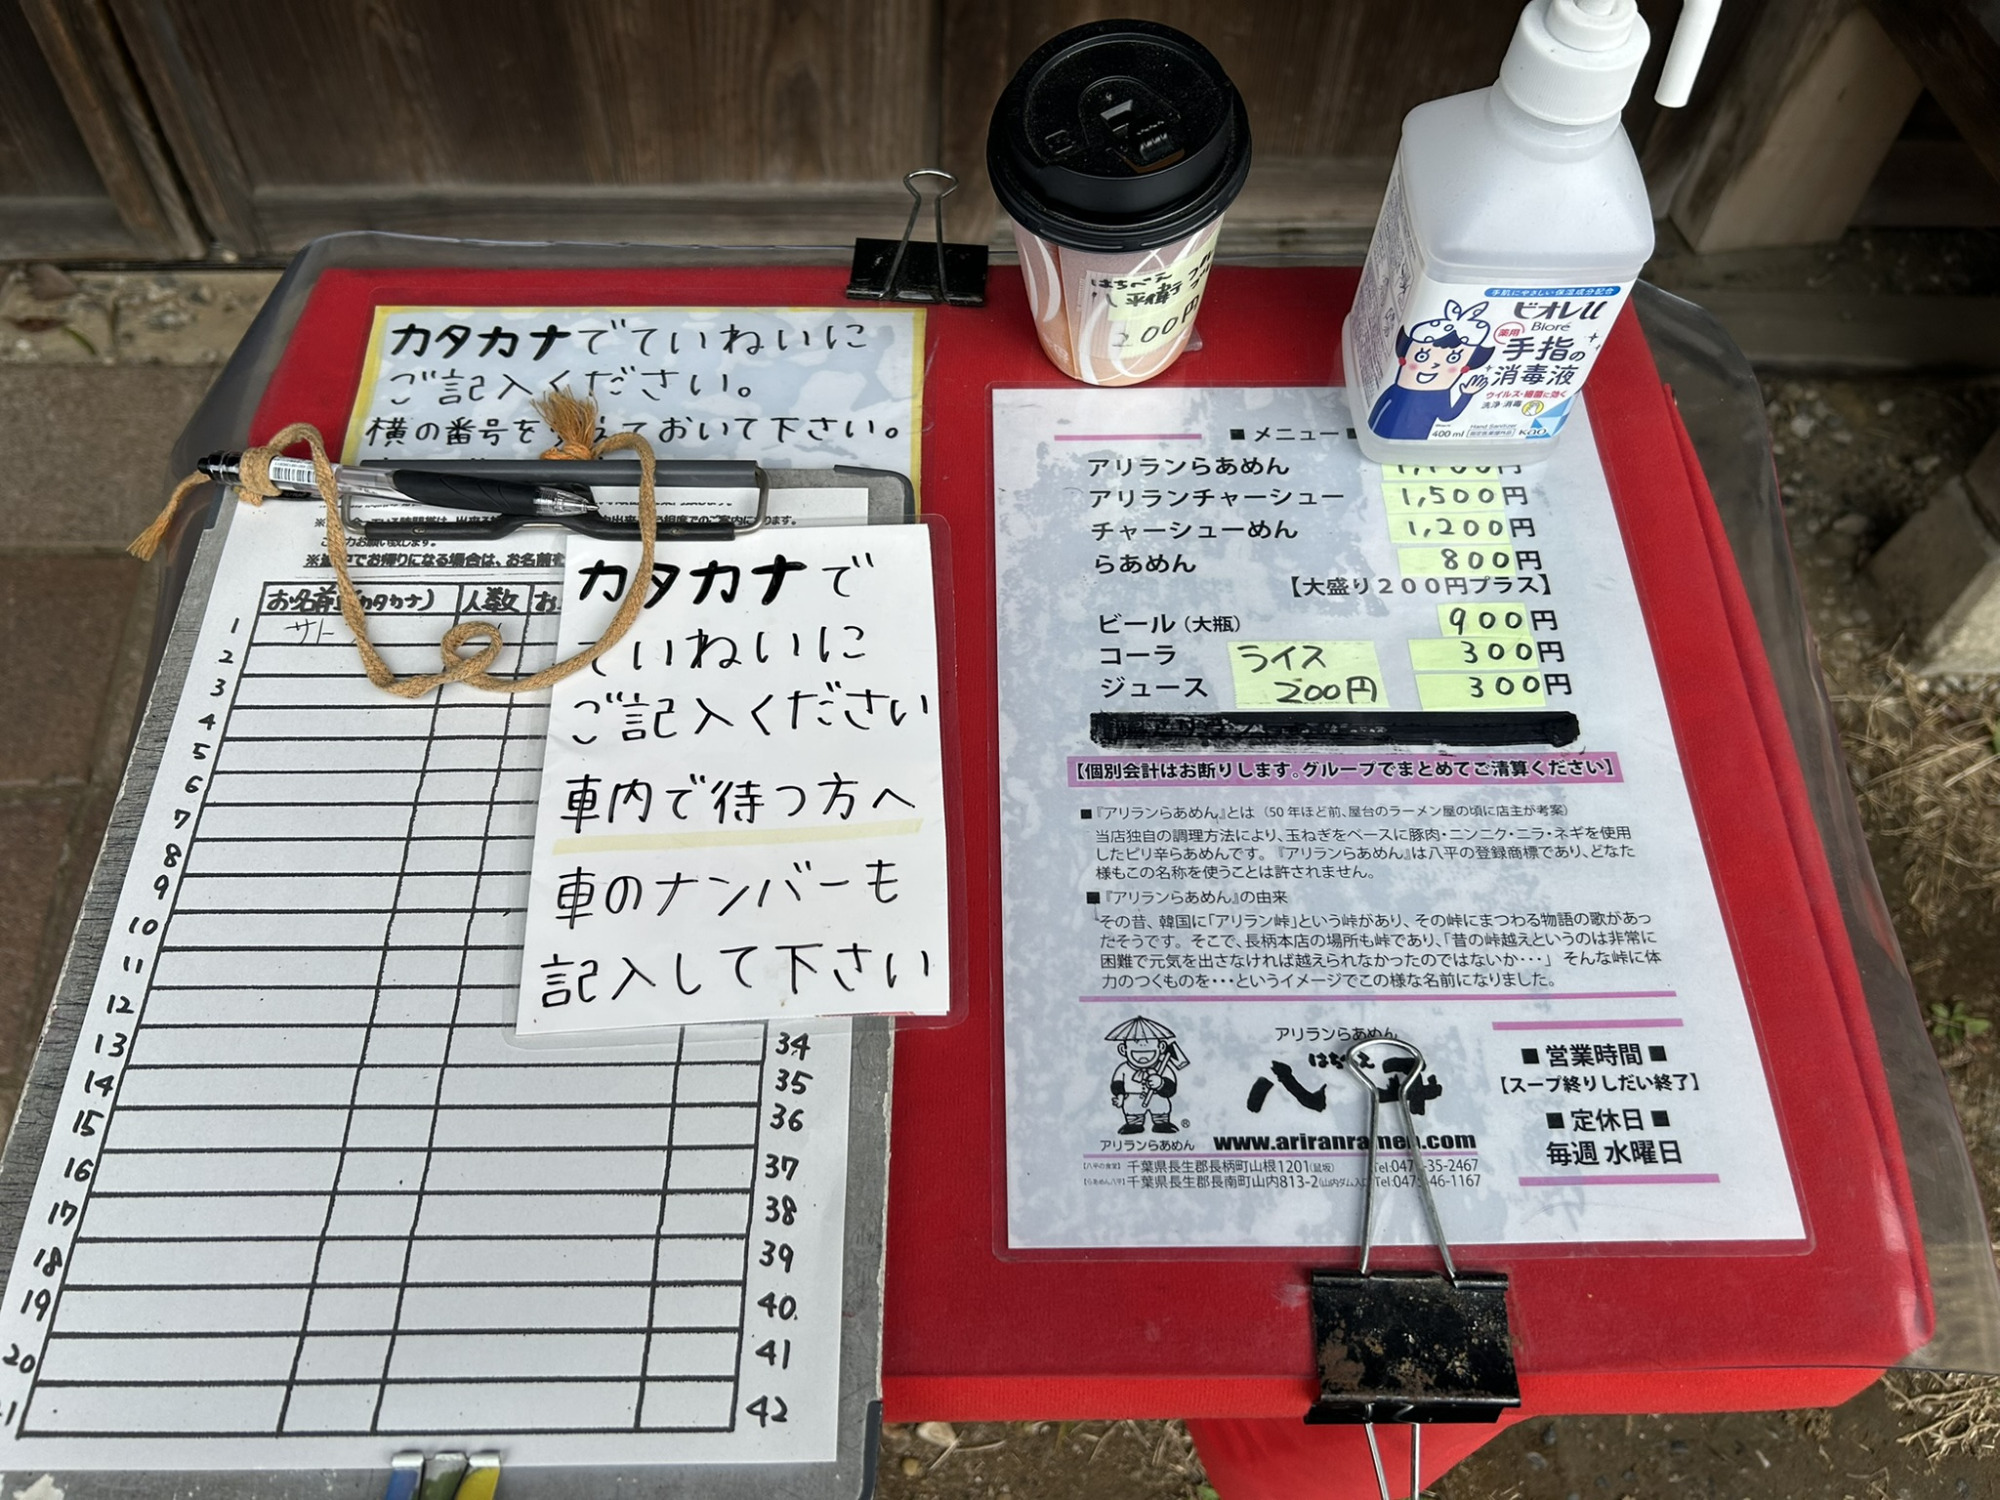 カタカナでていねいに
ご記入ください。
横の番号を
えておいて下さい。
ご
力お願い致します。
でお帰りになる場合は、お名前
お名前
カタカナ)
人数
お
サト
1
2
3
4
5
6
7
8
9
10
11
12
13
14
15
16
17
18
19
20
34
35
36
37
38
39
40
41
42
カタカナで
ていねいに
ご記入ください
車内で待つ方へ
車のナンバーも
記入して下さい
はちべえ
200円
手肌にやさしい保湿成分配合
ビオレu
Bioré
薬用
手指の
消毒液
ウイルス・細菌に効く
洗浄・消毒
400 ml
Hand Sanitizer
Kao
■ メニュー ■
アリランらあめん
アリランチャーシュー 1,500円
チャーシューめん 1,200円
らあめん 800円
【大盛り200円プラス】
ビール(大瓶) 900円
コーラ 300円
ジュース 300円
ライス
200円
【個別会計はお断りします。グループでまとめてご清算ください】
■『アリランらあめん』とは(50年ほど前、屋台のラーメン屋の頃に店主が考案)
当店独自の調理方法により、玉ねぎをベースに豚肉・ニンニク・ニラ・ネギを使用
したピリ辛らあめんです。『アリランらあめん』は八平の登録商標であり、どなた
様もこの名称を使うことは許されません。
■『アリランらあめん』の由来
その昔、韓国に「アリラン峠」という峠があり、その峠にまつわる物語の歌があっ
たそうです。そこで、長柄本店の場所も峠であり、「昔の峠越えというのは非常に
困難で元気を出さなければ越えられなかったのではないか・・・」 そんな峠に体
力のつくものを・・・というイメージでこの様な名前になりました。
アリランらあめん
八平
アリランらあめん
®
www.ariranramen.com
【八平の食堂】千葉県長生郡長柄町山根1201
Tel:047
-35-2467
【らあめん八平】千葉県長生郡長南町山内813-2(山内ダム入口)
Tel:0475-46-1167
■ 営業時間 ■
【スープ終りしだい終了】
■ 定休日 ■
毎週 水曜日